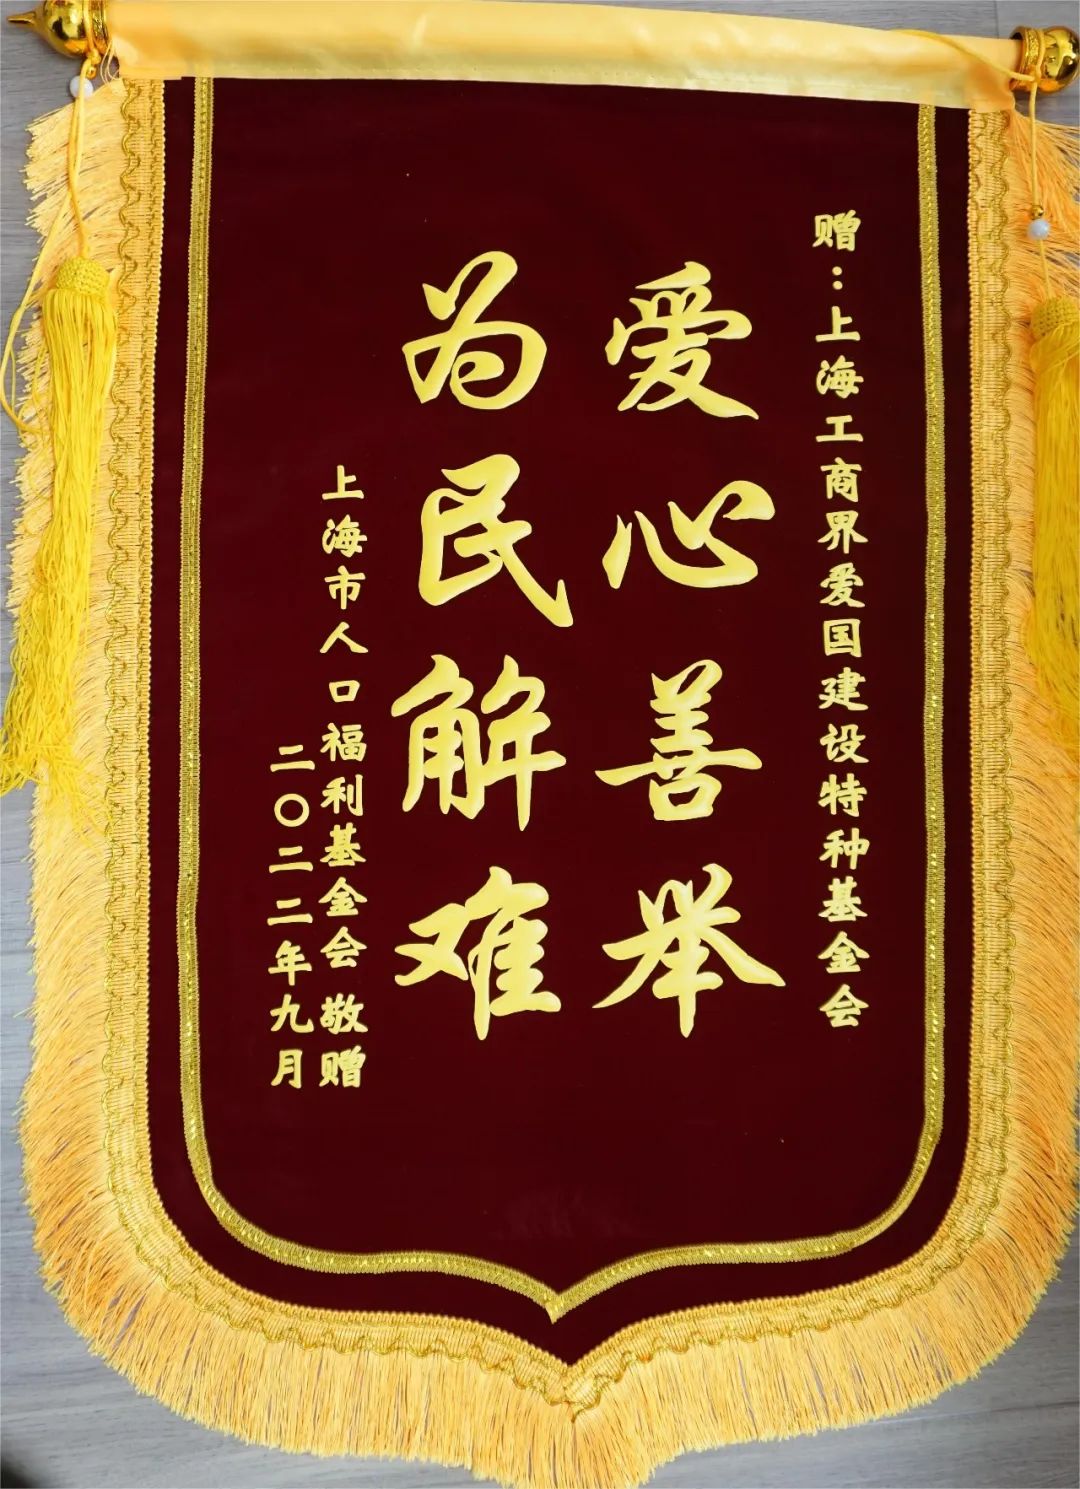 赠：上海工商界爱国建设特种基金会
爱心善举
为民解难
上海市人口福利基金会 敬赠
二〇二二年九月